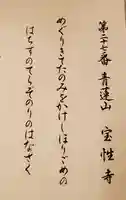 第二十七番 青蓮山 宝性寺
めぐりきてたのみをかけしほりごめの
はちすのてらぞのりのはなさく